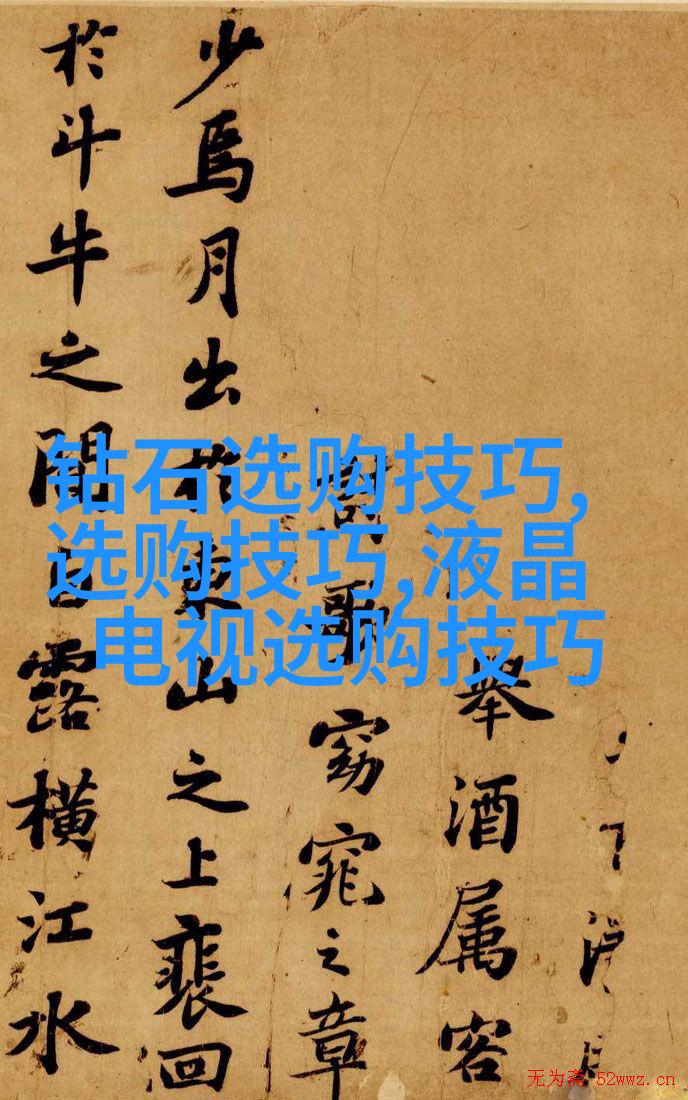 舉酒属客
歌窈窕之章
少焉月出於東山之上裴回
於斗牛之間白露橫江水
钻石选购技巧,
选购技巧,液晶
电视选购技巧
无为斋 52wwz.cn